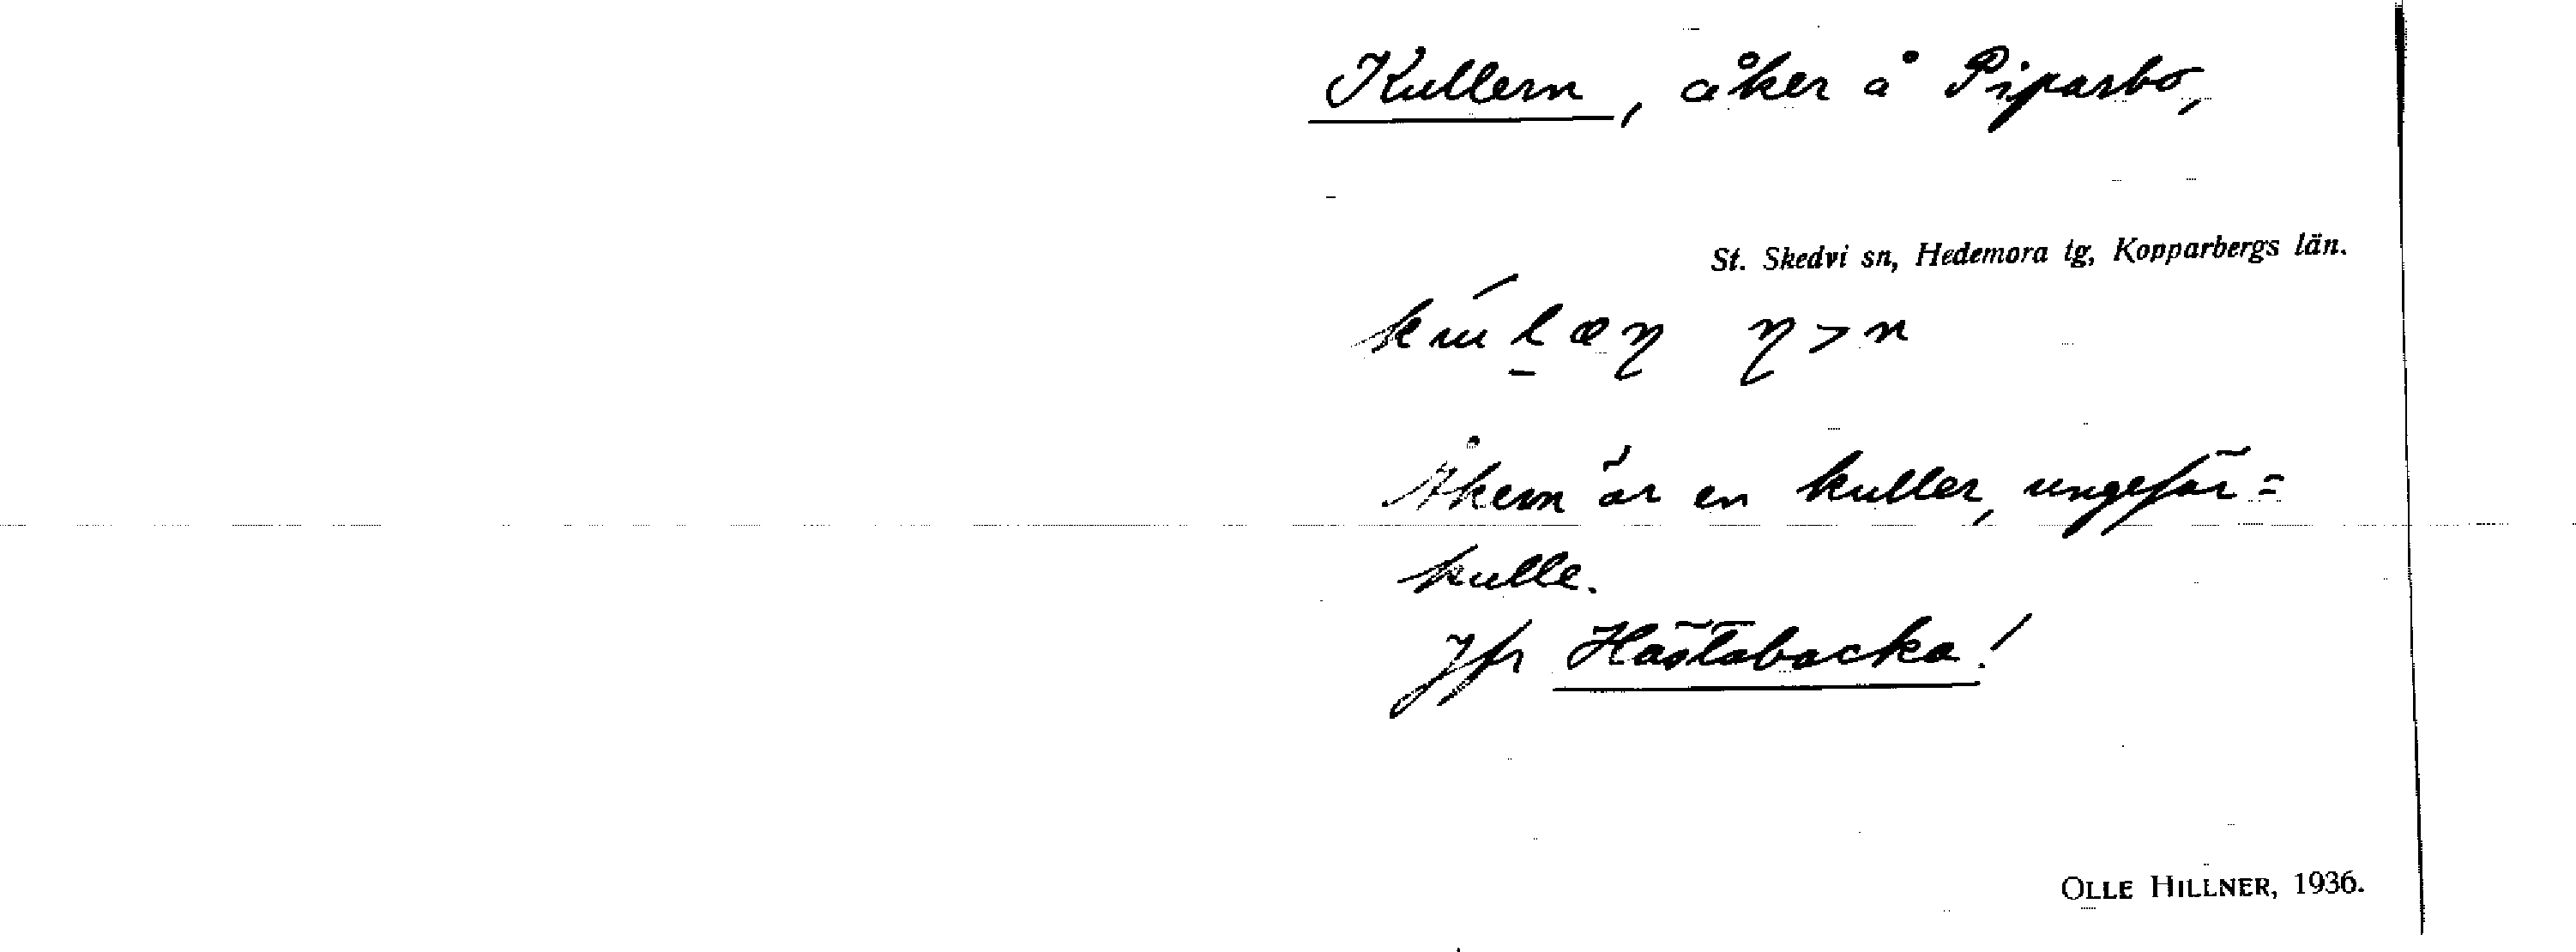 Kullern, åker å Piparsbo,
St. Skedvi sn, Hedemora tg, Kopparbergs län.
Åkern är en kuller, ungefär =
kulle.
Jfr Hästabacka!
OLLE HILLNER, 1936.